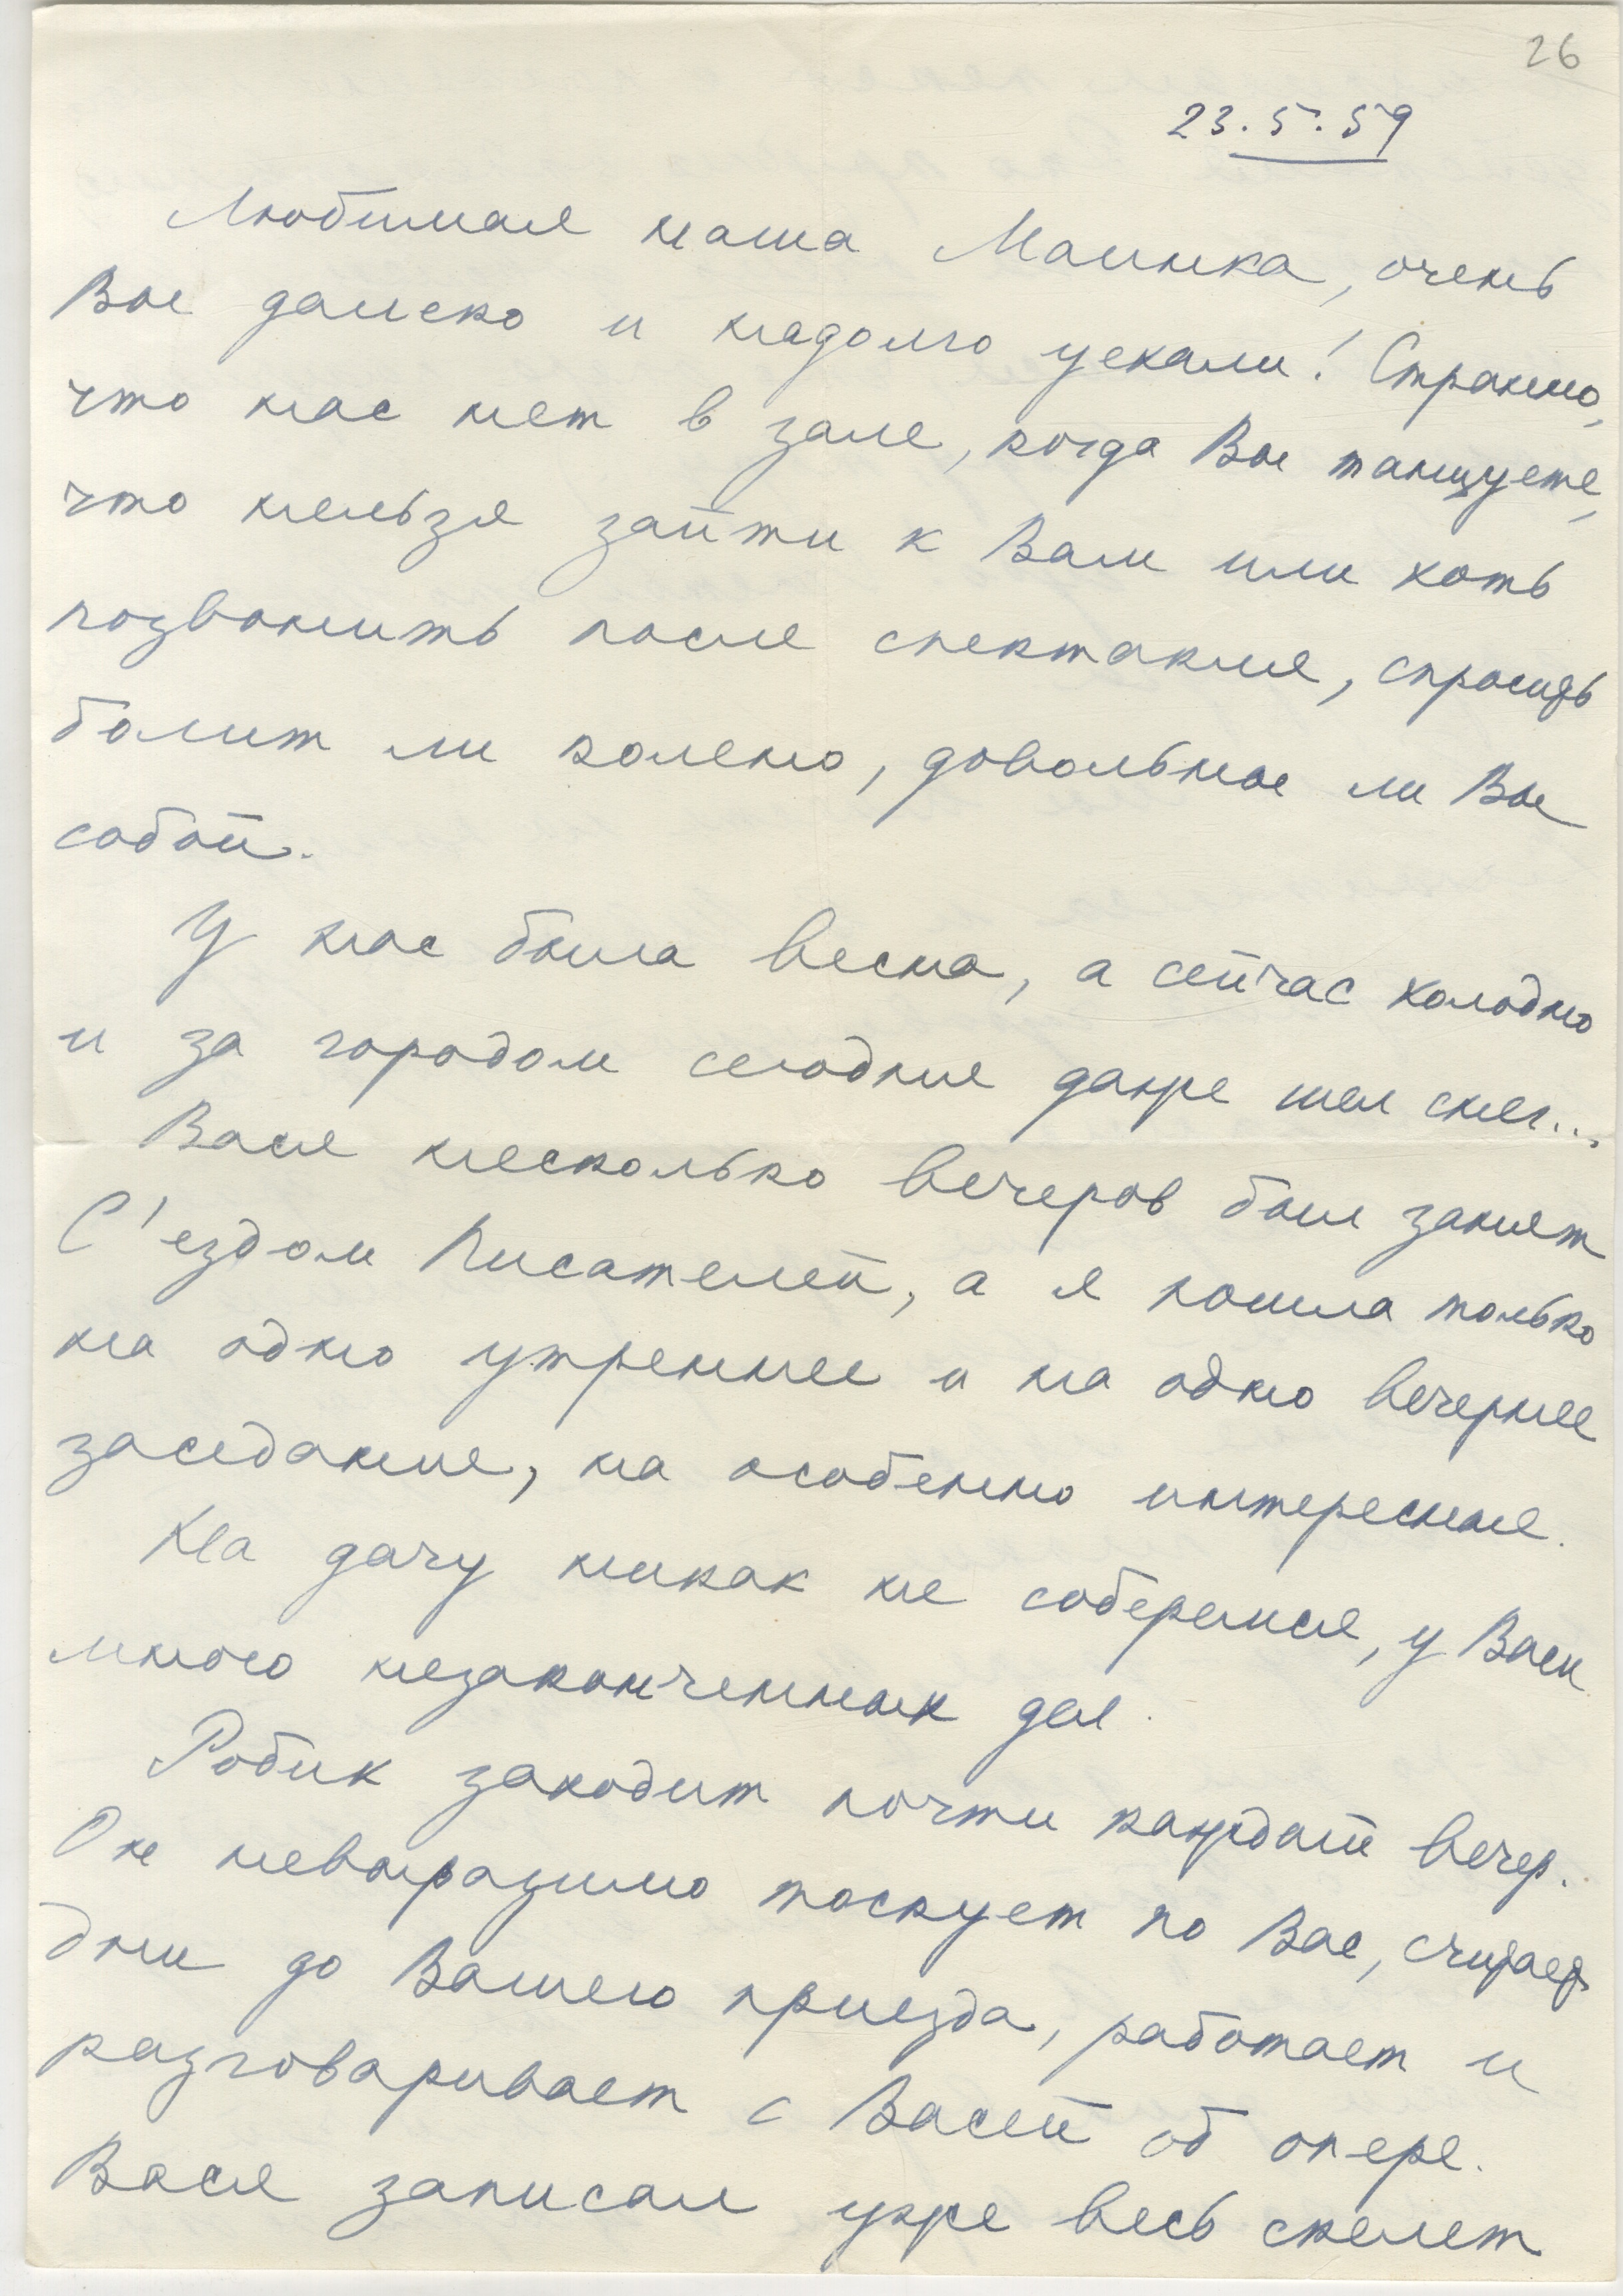 26
23.5.59
Любимая наша Маинка, очень
Вы далеко и надолго уехали! Странно,
что нас нет в зале, когда Вы танцуете,
что нельзя зайти к Вам или хоть
позвонить после спектакля, спросить
болит ли колено, довольны ли Вы
собой.
У нас была весна, а сейчас холодно
и за городом сегодня даже шел снег...
Вася несколько вечеров был занят
С'ездом Писателей, а я пошла только
на одно утреннее и на одно вечернее
заседание, на особенно интересные.
На дачу никак не соберемся, у Васи
много незаконченных дел.
Робик заходит почти каждый вечер.
Он невыразимо тоскует по Вас, считает
дни до Вашего приезда, работает и
разговаривает с Васей об опере.
Вася записал уже весь скелет